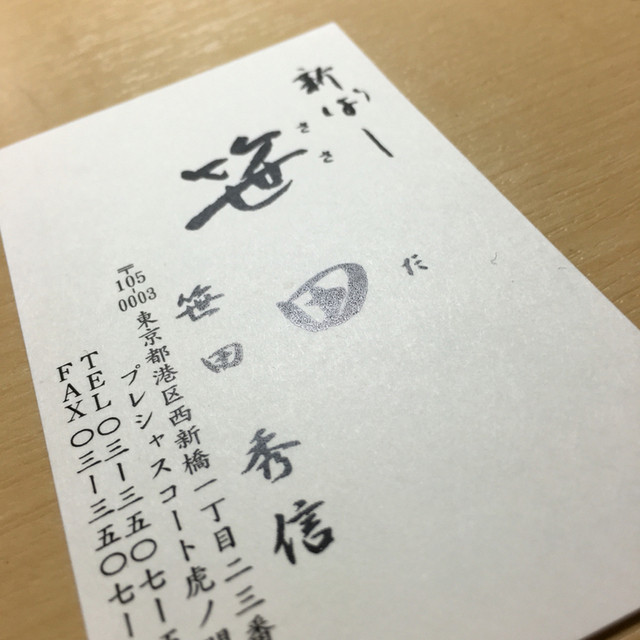 新ばし
ささ だ
笹田
笹田 秀信
〒105
0003
東京都港区西新橋一丁目二三番
プレシャスコート虎ノ門
TEL〇三ー三五〇七ー
FAX〇三ー三五〇七ー